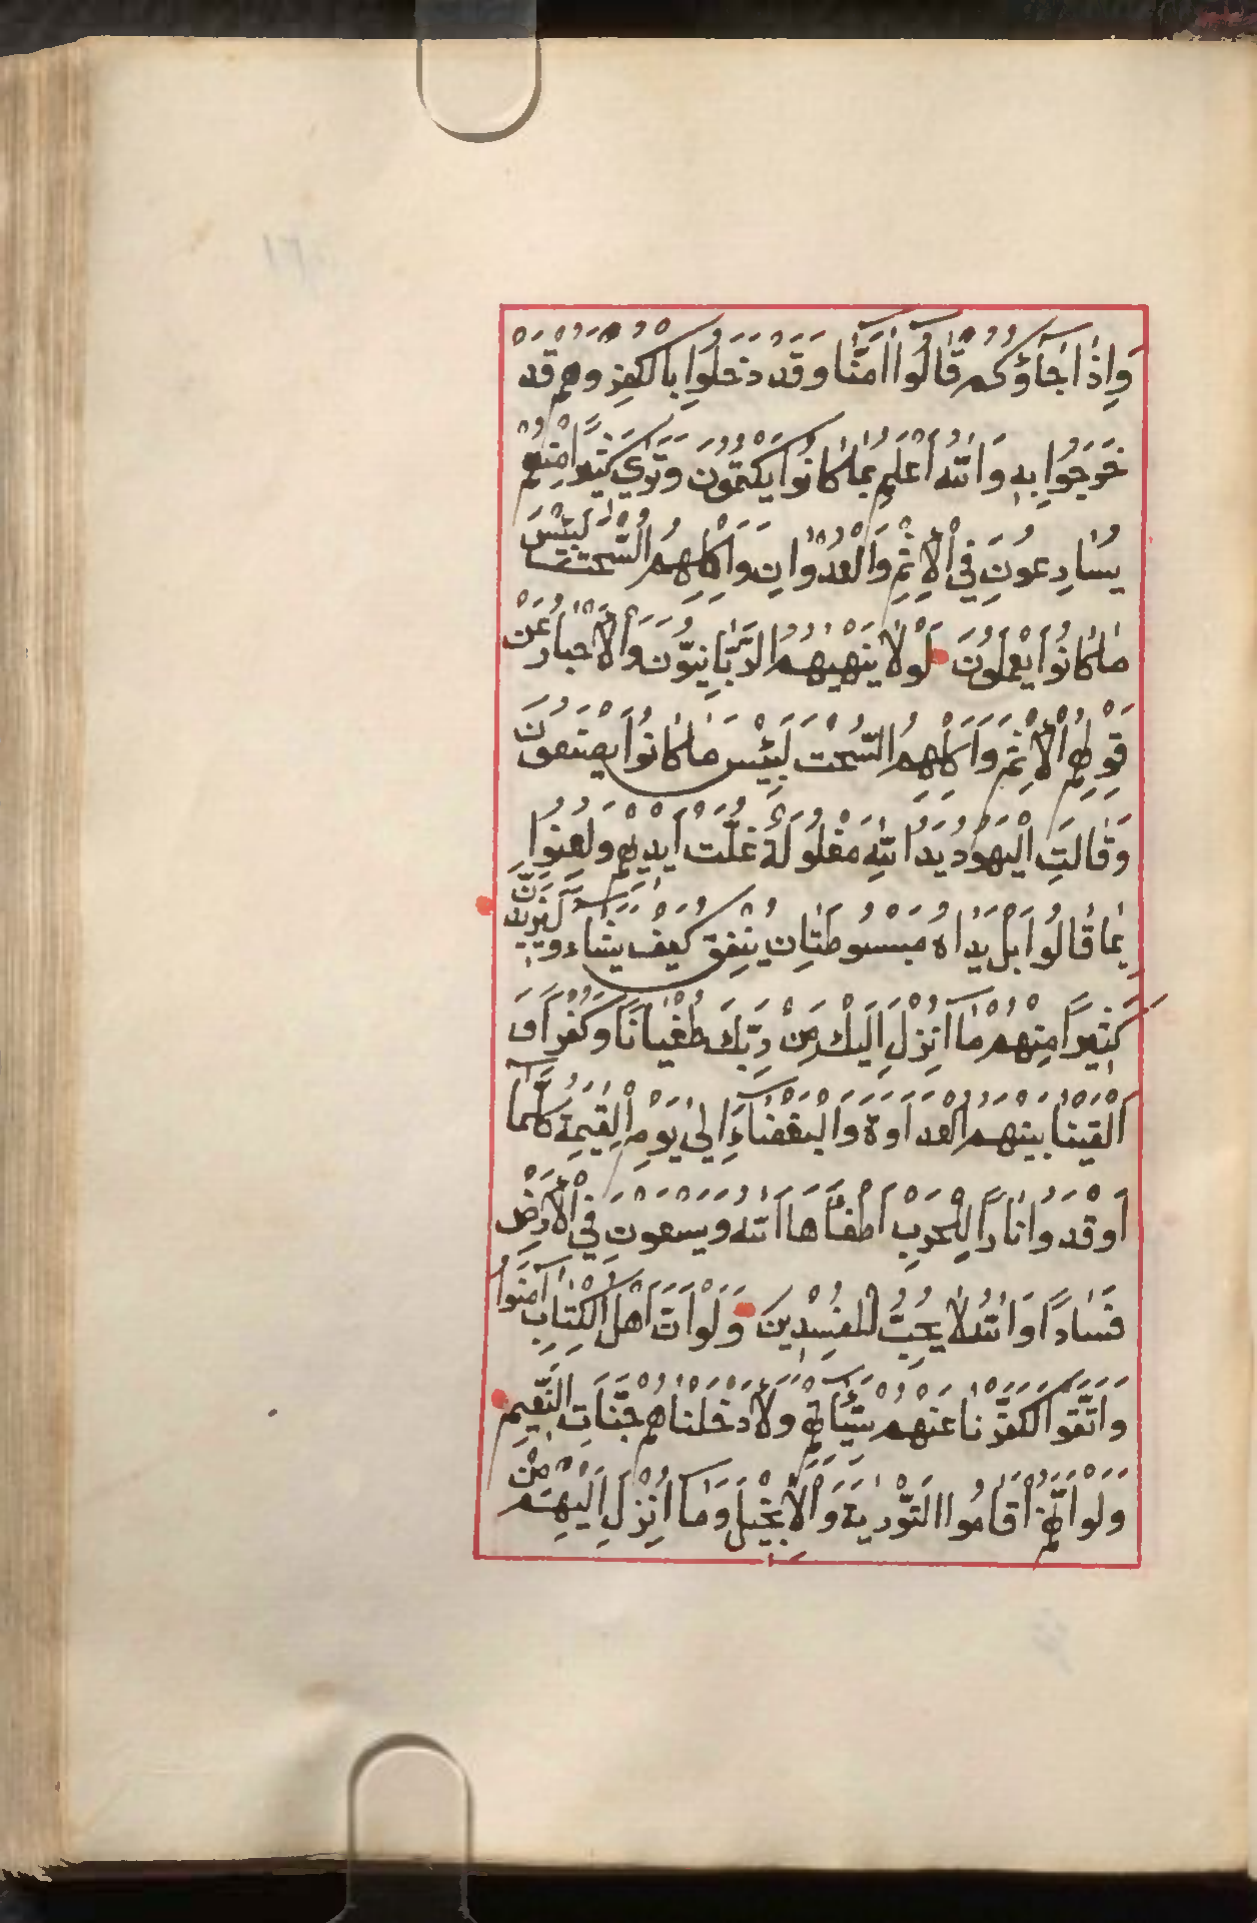 وَاِذٰا جَآؤُكُمْ قٰالُوا اٰمَنّٰا وَقَدْ دَخَلُوا بِالْكُفْرِ وَهُمْ قَدْ
خَرَجُوا بِهٖ وَاللّٰهُ اَعْلَمُ بِمٰا كٰانُوا يَكْتُمُونَ وَتَرٰى كَثِيْرًا مِنْهُمْ
يُسٰارِعُونَ فِي الْاِثْمِ وَالْعُدْوٰانِ وَاَكْلِهِمُ السُّحْتَ لَبِئْسَ
مٰا كٰانُوا يَعْمَلُونَ لَوْلٰا يَنْهٰيهُمُ الرَّبّٰانِيُّونَ وَالْاَحْبٰارُ عَنْ
قَوْلِهِمُ الْاِثْمَ وَاَكْلِهِمُ السُّحْتَ لَبِئْسَ مٰا كٰانُوا يَصْنَعُونَ
وَقٰالَتِ الْيَهُودُ يَدُ اللّٰهِ مَغْلُولَةٌ غُلَّتْ اَيْدِيهِمْ وَلُعِنُوا
بِمٰا قٰالُوا بَلْ يَدٰاهُ مَبْسُوطَتٰانِ يُنْفِقُ كَيْفَ يَشٰٓاءُ وَلَيَزِيدَنَّ
كَثِيْرًا مِنْهُمْ مٰٓا اُنْزِلَ اِلَيْكَ مِنْ رَبِّكَ طُغْيٰانًا وَكُفْرًا وَ
اَلْقَيْنٰا بَيْنَهُمُ الْعَدٰاوَةَ وَالْبَغْضٰآءَ اِلٰى يَوْمِ الْقِيٰمَةِ كُلَّمٰٓا
اَوْقَدُوا نٰارًا لِلْحَرْبِ اَطْفَاَهَا اللّٰهُ وَيَسْعَوْنَ فِي الْاَرْضِ
فَسٰادًا وَاللّٰهُ لٰا يُحِبُّ الْمُفْسِدِينَ وَلَوْ اَنَّ اَهْلَ الْكِتٰابِ اٰمَنُوا
وَاتَّقَوْا لَكَفَّرْنٰا عَنْهُمْ سَيِّئٰاتِهِمْ وَلَاَدْخَلْنٰاهُمْ جَنّٰاتِ النَّعِيمِ
وَلَوْ اَنَّهُمْ اَقٰامُوا التَّوْرٰيةَ وَالْاِنْجِيلَ وَمٰٓا اُنْزِلَ اِلَيْهِمْ مِنْ